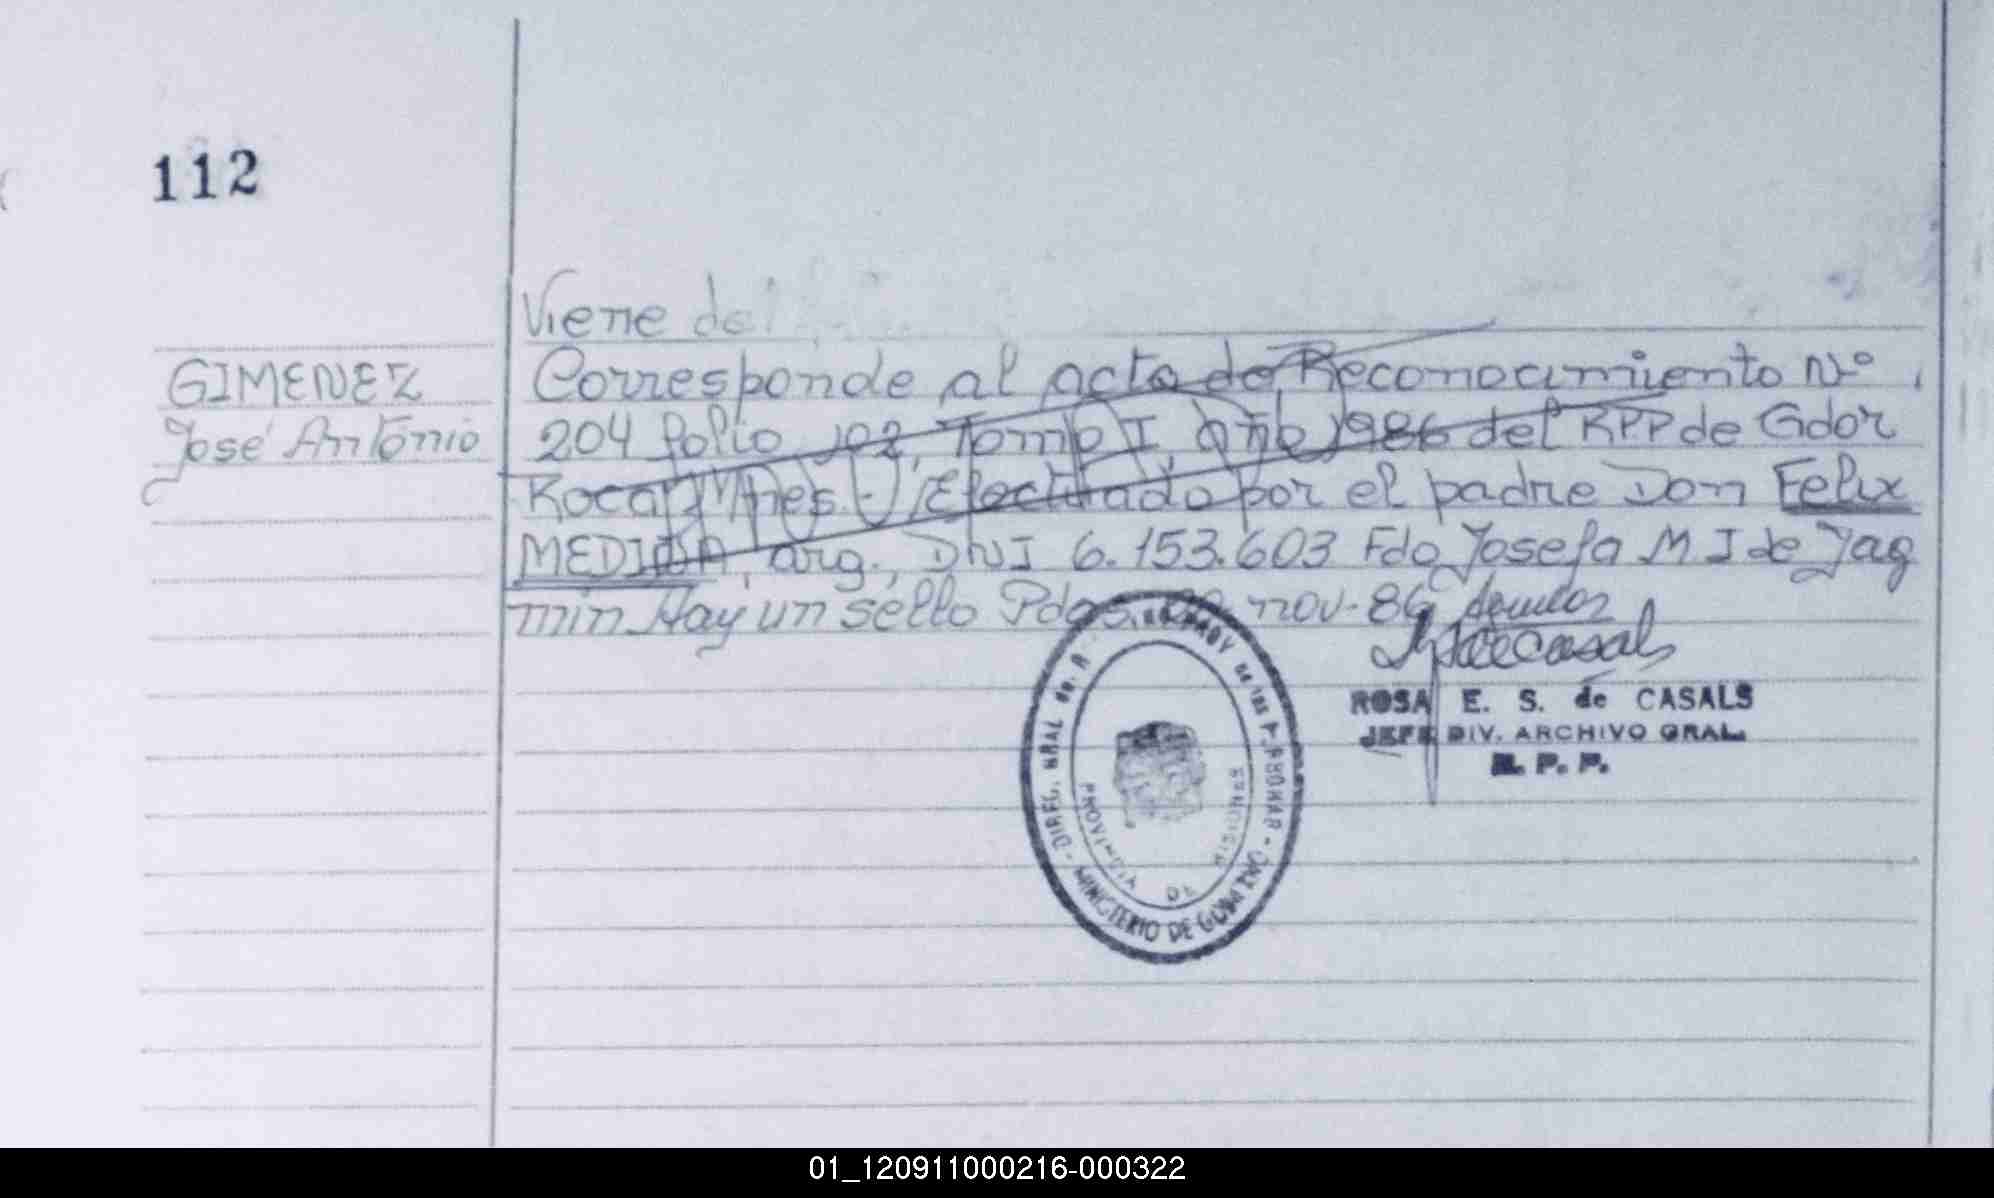 112
Viene del
GIMENEZ
José Antonio
Corresponde al acta de Reconocimiento Nº
204 folio 102, Tomo I, año 1986 del RPP de Gdor
Roca, Mnes.- Efectuado por el padre Don Felix
MEDINA, arg., DNI 6.153.603 Fdo Josefa M I de Jag
min Hay un sello Pdas. nov-86
ROSA E. S. de CASALS
JEFE DIV. ARCHIVO GRAL.
R. P. P.
DIREC. GRAL de. R PROV de las P.
MINISTERIO DE GOBIERNO
PROVINCIA DE MISIONES
01_120911000216-000322